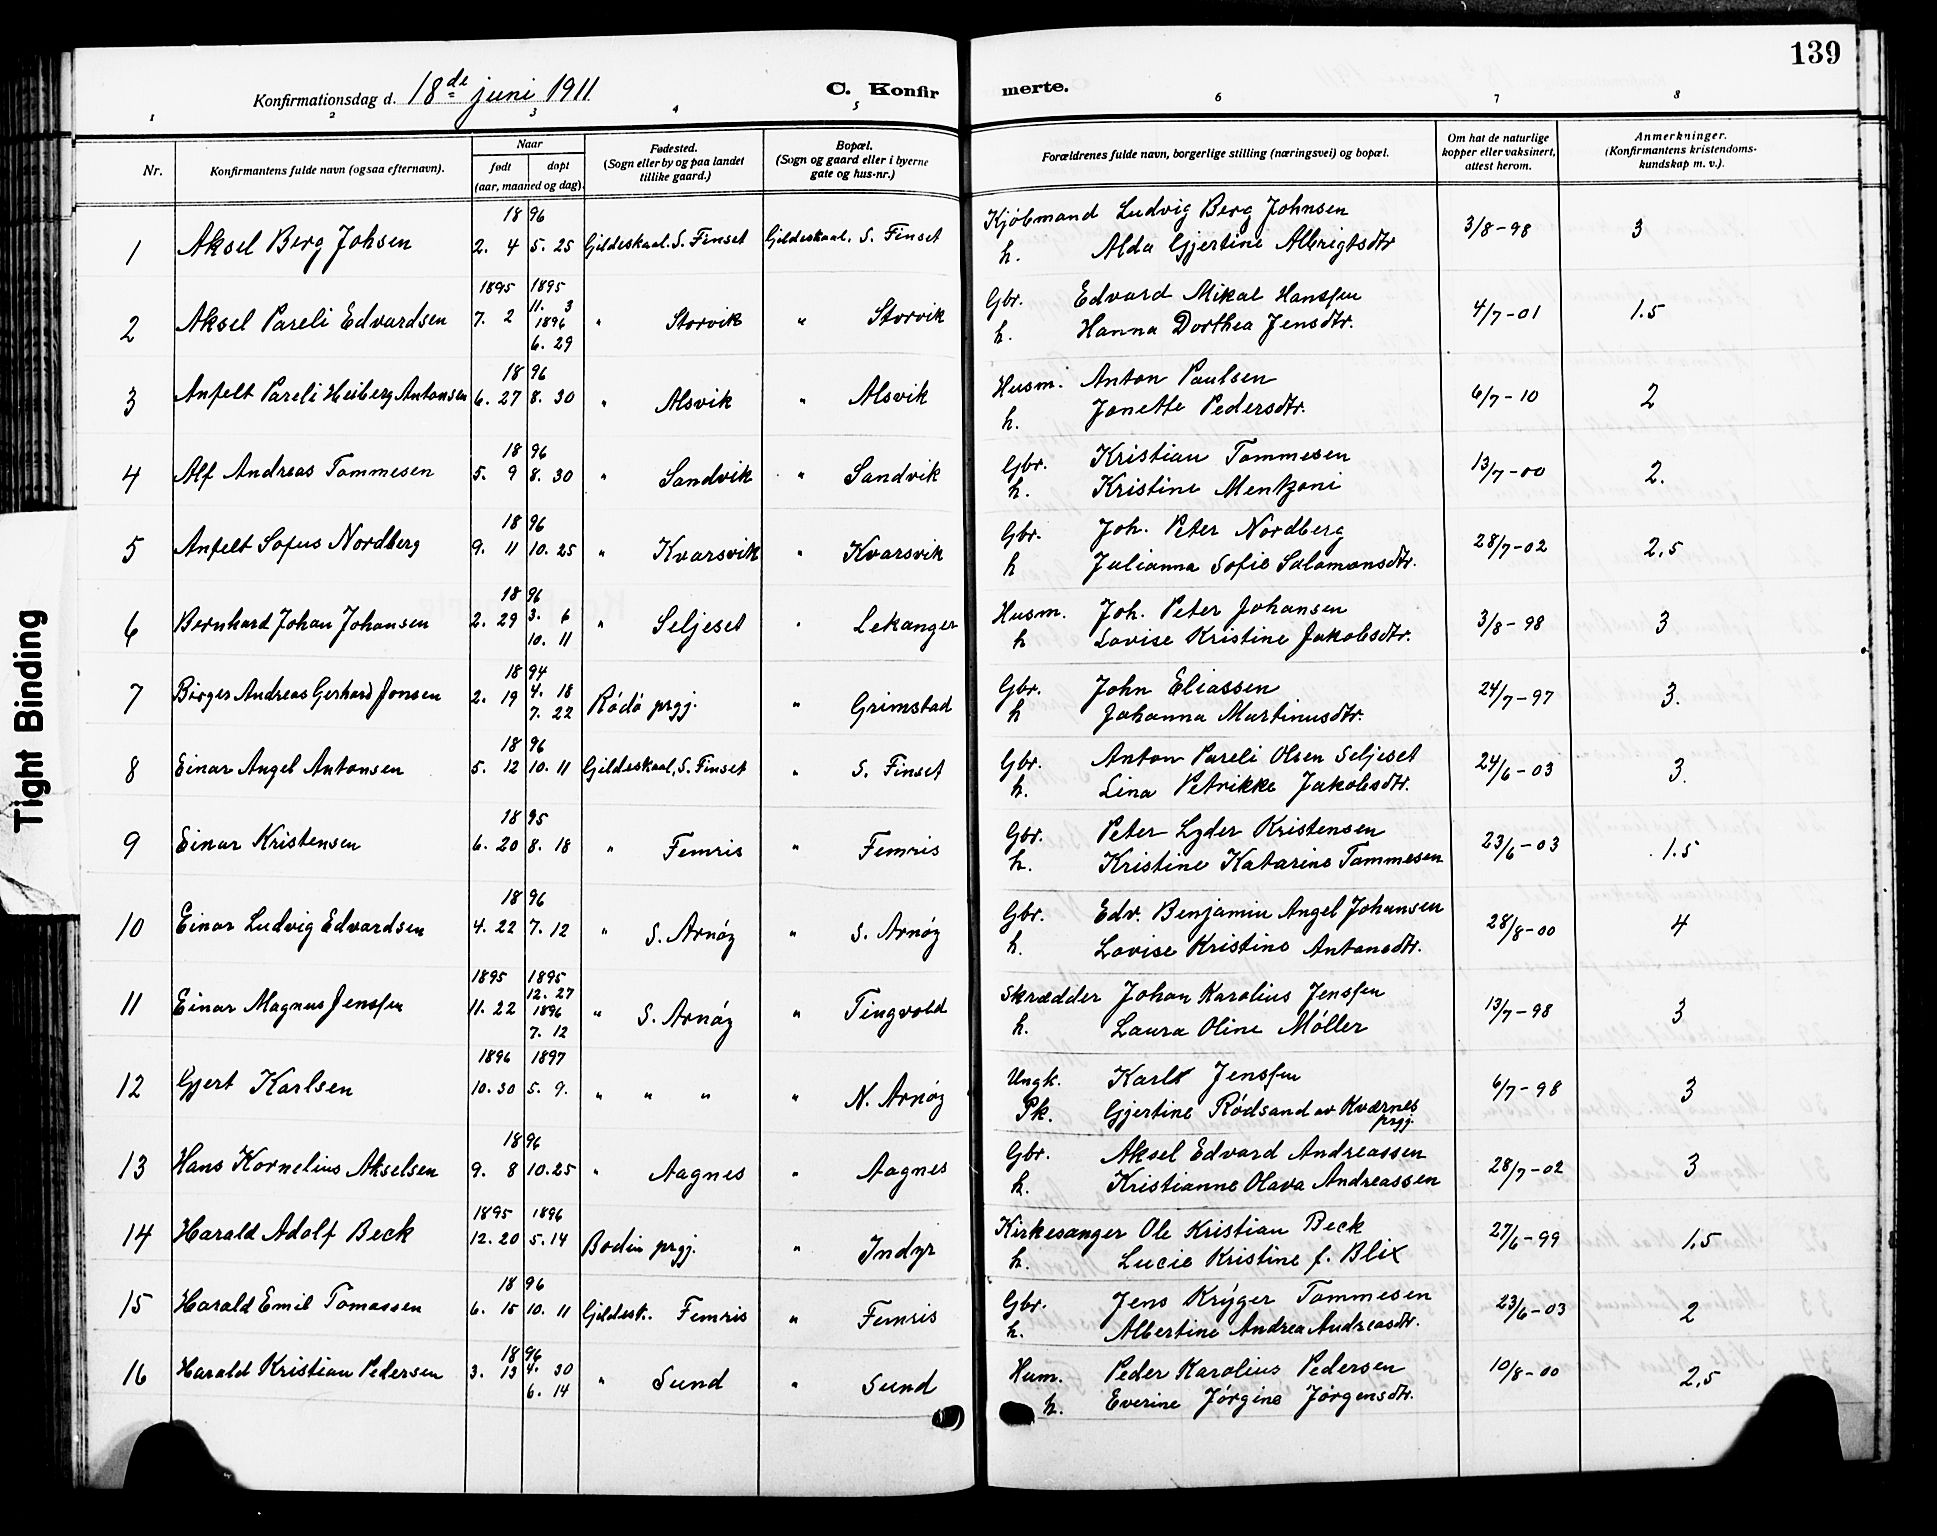 139
Konfirmationsdag d. 18de juni 1911 C. Konfirmerte.
1 2 3 4 5 6 7 8
Nr. Konfirmantens fulde navn (ogsaa efternavn). Naar født døpt (aar, maaned og dag). Fødested. (Sogn eller by og paa landet tillike gaard.) Bopæl. (Sogn og gaard eller i byerne gate og hus-nr.) Forældrenes fulde navn, borgerlige stilling (næringsvei) og bopæl. Om hat de naturlige kopper eller vaksinert, attest herom. Anmerkninger. (Konfirmantens kristendomskundskap m. v.).
18 96 Kjöbmand Ludvig Berg Johnsen
1 Aksel Berg Johsen 2. 4 5. 25 Gildeskaal. S. Finset Gildeskaal. S. Finset h. Alda Gjertine Albrigtsdtr 3/8-98 3
1895 1895 Gbr. Edvard Mikal Hanssen
11. 3
2 Aksel Pareli Edvardsen 7. 2 1896 " Storvik " Storvik h. Hanna Dorthea Jensdtr. 4/7-01 1.5
6. 29
18 96 Husm. Anton Paulsen
3 Anfelt Pareli Heiberg Antonsen 6. 27 8. 30 " Alsvik " Alsvik h. Janette Pedersdtr. 6/7-10 2
18 96 Gbr. Kristian Tommesen
4 Alf Andreas Tommesen 5. 9 8. 30 " Sandvik " Sandvik h. Kristine Mentzoni 13/7-00 2.
18 96 Gbr. Joh. Peter Nordberg
5 Anfelt Sofus Nordberg 9. 11 10. 25 " Kvarsvik " Kvarsvik h Julianna Sofie Salamonsdtr. 28/7-02 2,5
18 96 Husm. Joh. Peter Johansen
6 Bernhard Johan Johansen 2. 29 3. 6 " Seljeset " Lekanger h Lovise Kristine Jakobsdtr. 3/8-98 3
10. 11
18 94 Gbr. John Eliassen
7 Birger Andreas Gerhard Jonsen 2. 19 4. 18 Rödö prgj. " Grimstad h Johanna Martinusdtr. 24/7-97 3.
7. 22
18 96 Gbr. Anton Pareli Olsen Seljeset
8 Einar Angel Antonsen 5. 12 10. 11 Gildeskaal, S. Finset " S. Finset h. Lina Petrikke Jakobsdtr. 24/6-03 3.
18 95 Gbr. Peter Lyder Kristensen
9 Einar Kristensen 6. 20 8. 18 " Femris " Femris h. Kristine Katarine Tommesen 23/6-03 1.5
18 96 Gbr. Edv. Benjamin Angel Johansen
10 Einar Ludvig Edvardsen 4. 22 7. 12 " S. Arnöy " S. Arnöy h. Lovise Kristine Antonsdtr. 28/8-00 4
1895 1895 Skrædder Johan Karolius Jenssen
12. 27
11 Einar Magnus Jenssen 11. 22 1896 " S. Arnöy " Tingvold h. Laura Oline Möller 13/7-98 3
7. 12
1896 1897 Ungk. Karl Jenssen
12 Gjert Karlsen 10. 30 5. 9. " " " " N. Arnöy Pk. Gjertine Rödsand av Kværnes prgj. 6/7-98 3
18 96 Gbr. Aksel Edvard Andreassen
13 Hans Kornelius Akselsen 9. 8 10. 25 " Aagnes " Aagnes h. Kristianne Olava Andreassen 28/7-02 3
1895 1896 Kirkesanger Ole Kristian Beck
14 Harald Adolf Beck 12. 20 5. 14 Bodin prgj. " Indyr h. Lucie Kristine f. Blix 27/6-99 1,5
18 96 Gbr. Jens Krýger Tommesen
15 Harald Emil Tomassen 6. 15 10. 11 Gildesk. Femris " Femris h. Albertine Andrea Andreasdtr. 23/6-03 2
18 96 Hum. Peder Karolius Pedersen
16 Harald Kristian Pedersen 3. 13 4. 30 " Sund " Sund h. Everine Jörgine Jörgensdtr. 10/8-00 2,5
6. 14
Tight Binding